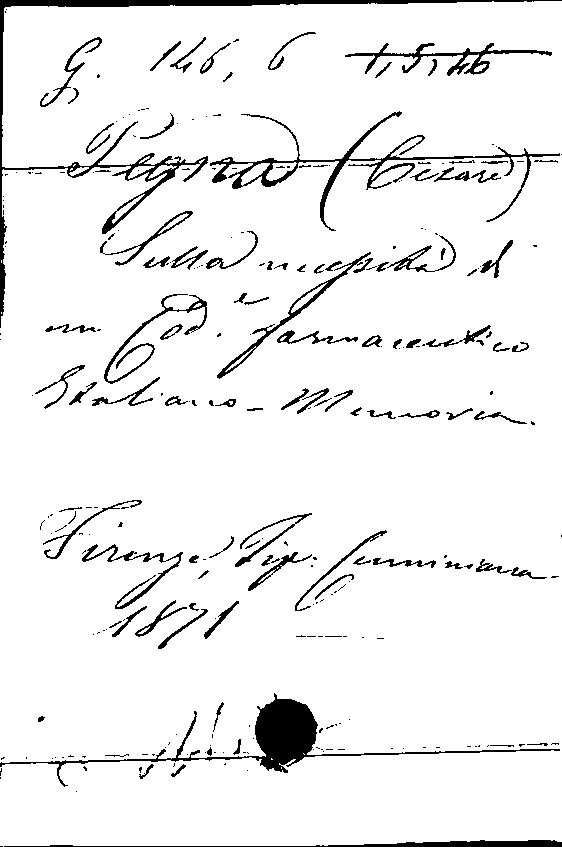 G. 146, 6 1, 5, 46
Pegna (Cesare)
Sulla necessità di
un Cod.e farmaceutico
Italiano - Memoria.
Firenze, Tip: Cenniniana
1871